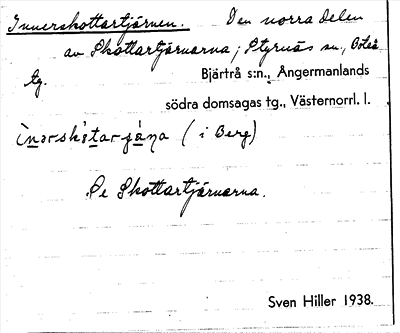 Innerskottartjärnen. Den norra delen
av Skottartjärnarna; Styrnäs sn, Boteå
tg.
Bjärtrå s:n., Ångermanlands
södra domsagas tg., Västernorrl. l.
(i Berg)
Se Skottartjärnarna.
Sven Hiller 1938.